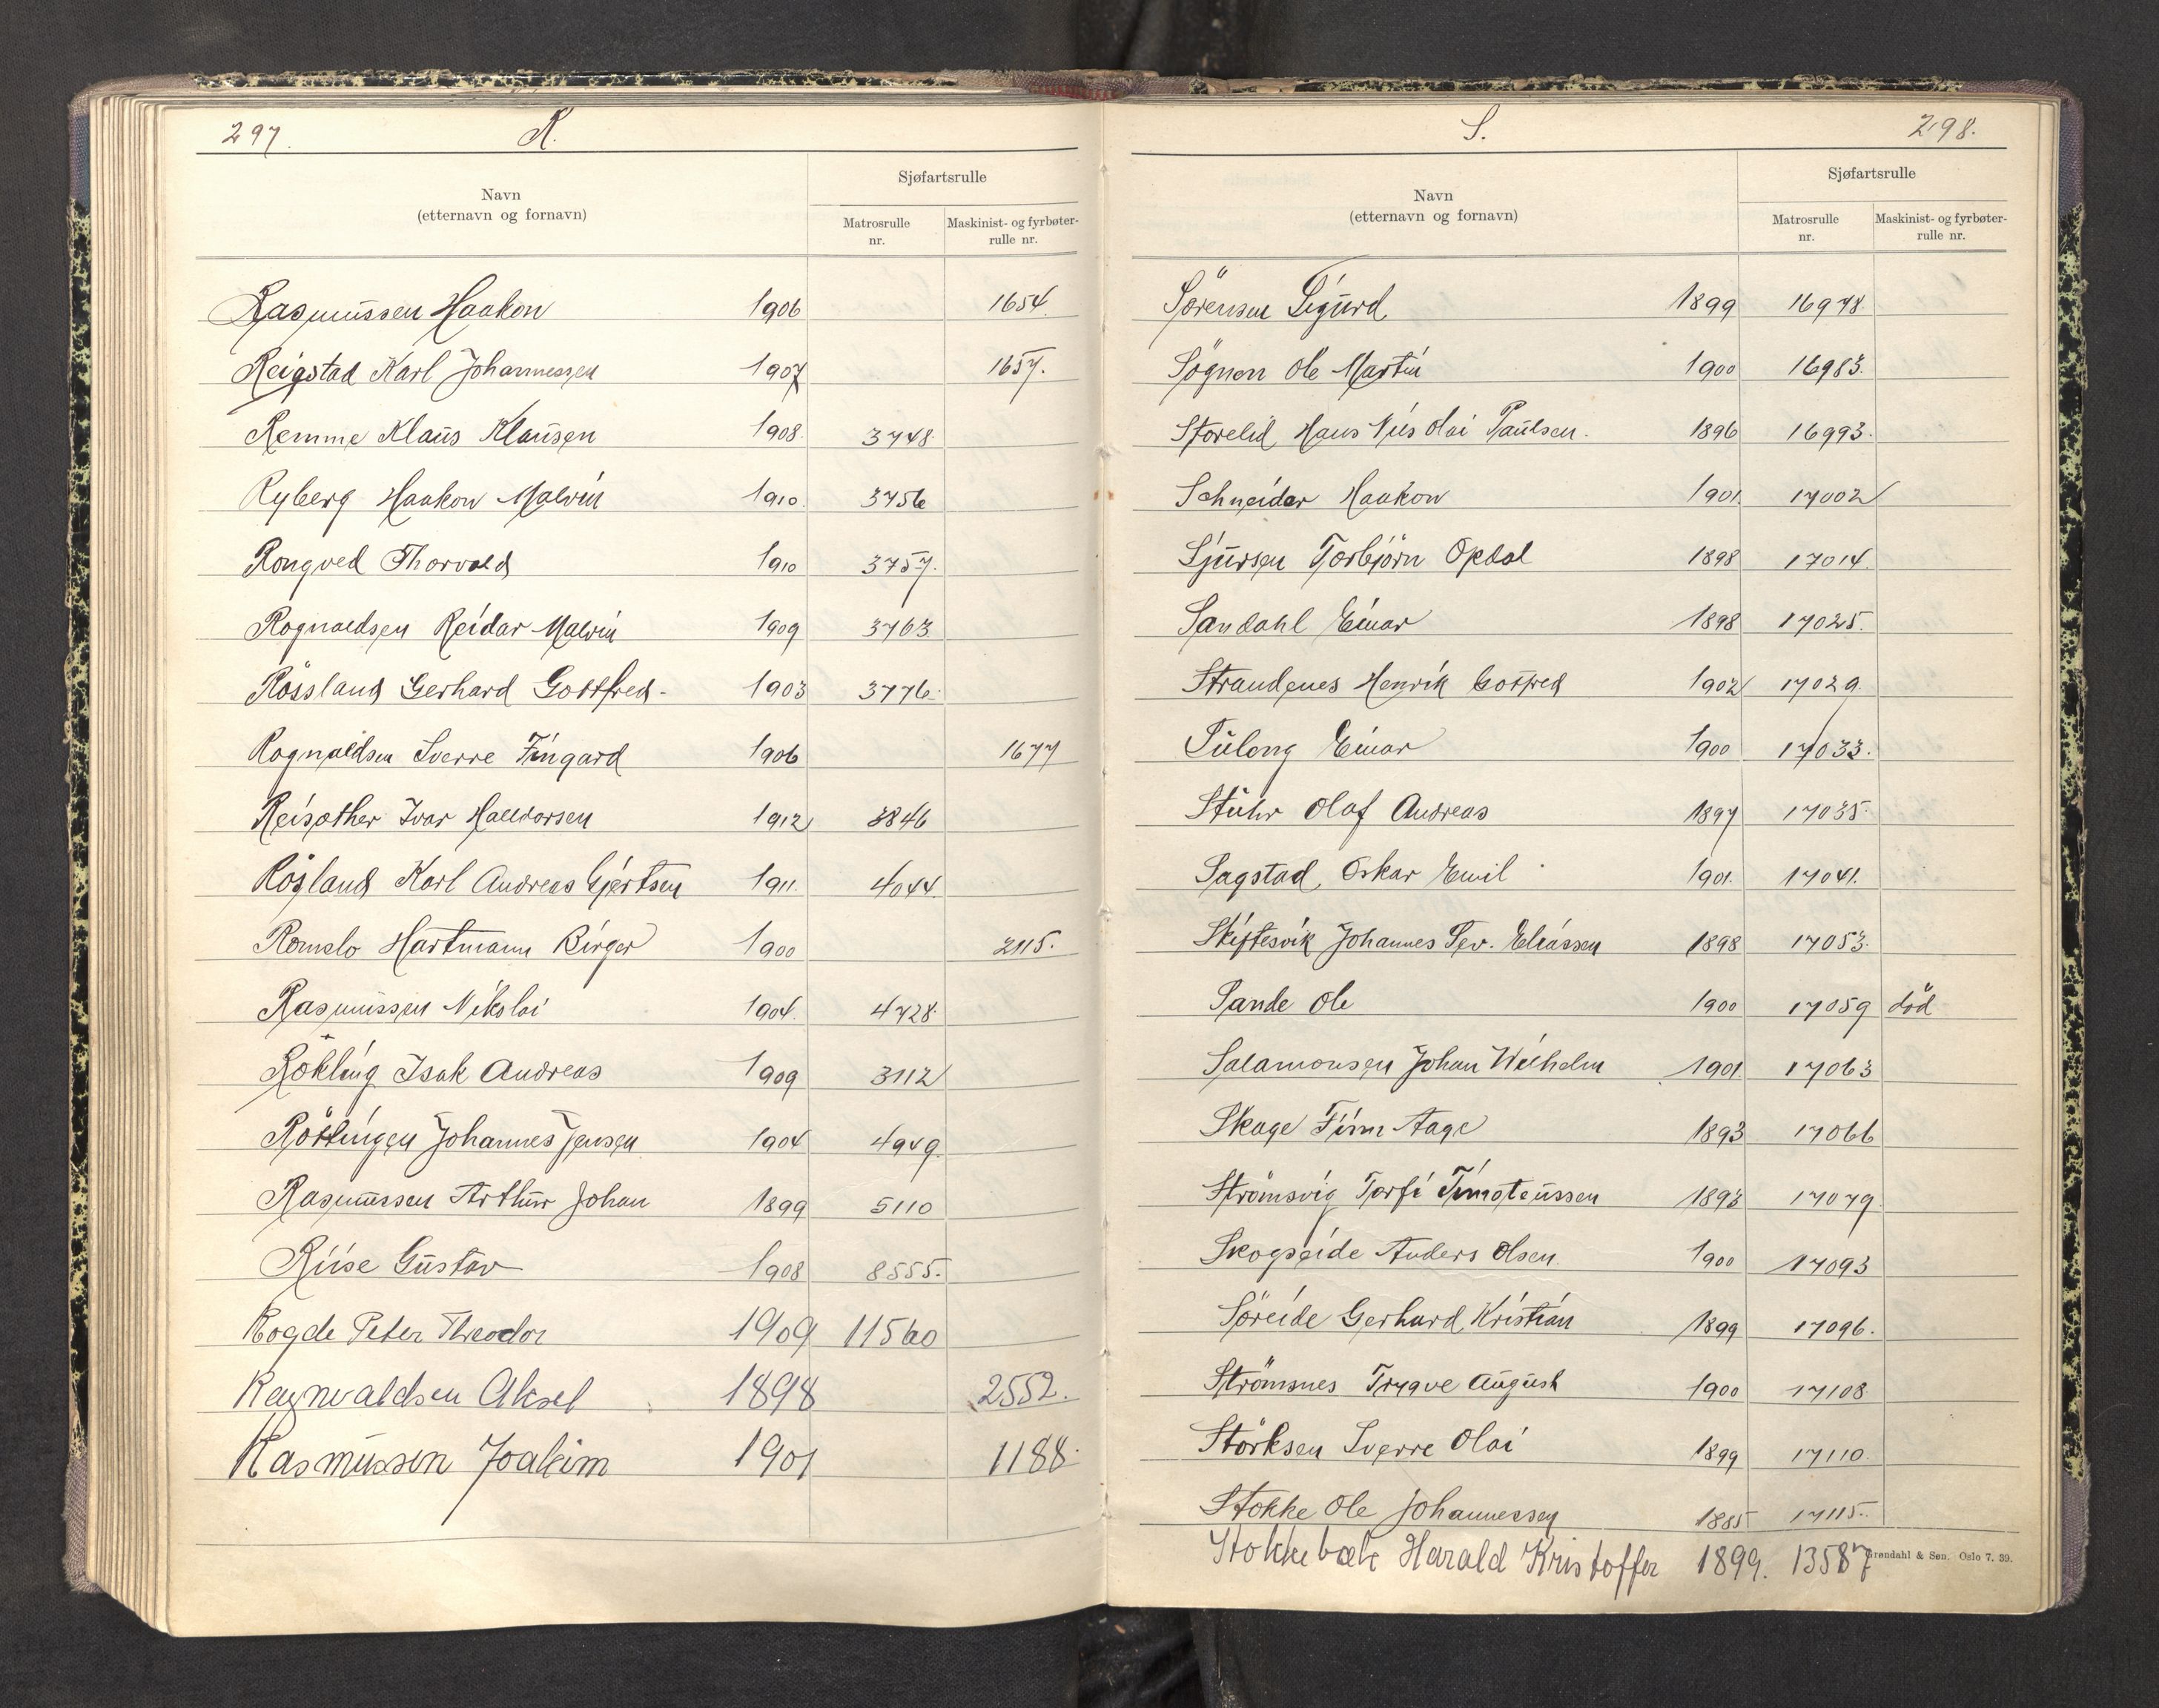 297. R.
Sjøfartsrulle
Navn
(etternavn og fornavn)
Matrosrulle nr.
Maskinist- og fyrbøter-rulle nr.
Rasmussen Haakon 1906 1654.
Reigstad Karl Johannessen 1907 1657.
Remme Klaus Klausen 1908. 3748.
Ryberg Haakon Malvin 1910. 3756
Rongved Thorvald 1910 3757.
Rognaldsen Reidar Malvin 1909 3763
Rössland Gerhard Gottfred. 1903 3776.
Rognaldsen Sverre Fingard 1906 1677
Reisæther Ivar Halvorsen 1912 3846
Rösland Karl Andreas Gjertsen 1911. 4044.
Romslo Hartmann Birger 1900 2115.
Rasmussen Nikolai 1904. 4728.
Rökling Isak Andreas 1909 3112
Röttingen Johannes Jensen 1904 4949.
Rasmussen Arthur Johan 1899 5110
Riise Gustav 1908 8555.
Rogde Peter Theodor 1909 11560
Ragnvaldsen Aksel 1898 2552.
Rasmussen Joakim 1901 1188.
S. 298.
Sjøfartsrulle
Navn
(etternavn og fornavn)
Matrosrulle nr.
Maskinist- og fyrbøter-rulle nr.
Sörensen Sigurd 1899 16978.
Sögnen Ole Martin 1900 16983.
Storelid Hans Nils Olai Paulsen. 1896 16993.
Schneider Haakon 1901. 17002
Sjursen Torbjörn Opdal 1898 17014.
Sandahl Einar 1898 17025.
Strandenes Henrik Gotfred 1902 17029.
Suleng Einar 1900 17033.
Stuhr Olaf Andreas 1897 17035.
Sagstad Oskar Emil 1901. 17041.
Skiftesvik Johannes Sev. Eliassen 1898 17053.
Sande Ole 1900 17059 död
Salamonsen Johan Wilhelm 1901. 17063
Skage Finn Aage 1893 17066
Strömsvig Torfi Timoteussen 1893 17079.
Skogseide Anders Olsen. 1900 17093
Söreide Gerhard Kristian 1899 17096.
Strömsnes Trygve August 1900 17108
Störksen Sverre Olai 1899 17110.
Stokke Ole Johannessen 1885 17115.
Stokkebæk Harald Kristoffer 1899. 13587
Grøndahl & Søn. Oslo 7. 39.